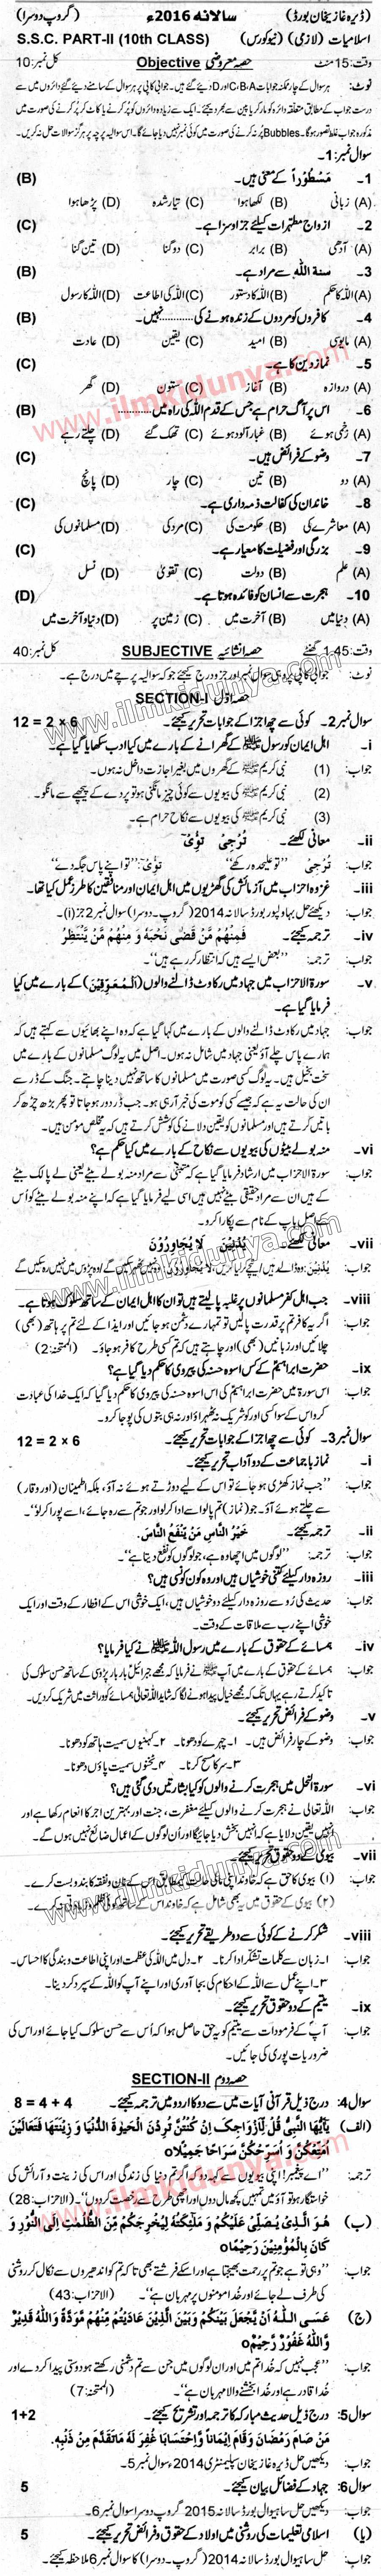 (ڈیرہ غازیخان بورڈ) سالانہ 2016ء (گروپ دوسرا)
اسلامیات (لازمی) (نیو کورس) S.S.C. PART-II (10th CLASS)
وقت: 15 منٹ حصہ معروضی Objective کل نمبر: 10
نوٹ: ہر سوال کے چار ممکنہ جوابات C،B،A اور D دیئے گئے ہیں۔ جوابی کاپی پر ہر سوال کے سامنے دیئے گئے دائروں میں سے
درست جواب کے مطابق متعلقہ دائرہ کو مارکر یا پین سے بھر دیجئے۔ ایک سے زیادہ دائروں کو پُر کرنے یا کاٹ کر پُر کرنے کی صورت میں
مذکورہ جواب غلط تصور ہوگا۔ Bubbles پُر نہ کرنے کی صورت میں کوئی نمبر نہیں دیا جائے گا۔ اس سوالیہ پرچہ پر ہرگز سوالات حل نہ کریں۔
سوال نمبر: 1۔
1۔ مَسْطُوْراً کے معنی ہیں۔ (B)
(A) زبانی (B) لکھا ہوا (C) تیار شدہ (D) پڑھا ہوا
2۔ ازواج مطہرات کیلئے جزا و سزا ہے۔ (C)
(A) آدھی (B) برابر (C) دو گنا (D) تین گنا
3۔ سنة اللّٰه سے مراد ہے۔ (B)
(A) اللہ کا حکم (B) اللہ کا دستور (C) اللہ کی اطاعت (D) اللہ کا رسول
4۔ کافروں کو مردوں کے زندہ ہونے کی ............ نہیں۔ (B)
(A) مایوسی (B) امید (C) یقین (D) عادت
5۔ نماز دین کا ہے۔ (C)
(A) دروازہ (B) آغاز (C) ستون (D) گھر
6۔ اس پر آگ حرام ہے جس کے قدم اللہ کی راہ میں ............ (B)
(A) زخمی ہوئے (B) غبار آلود ہوئے (C) تھک گئے (D) چلتے رہے
7۔ وضو کے فرائض ہیں۔ (C)
(A) دو (B) تین (C) چار (D) پانچ
8۔ خاندان کی کفالت ذمہ داری ہے۔ (C)
(A) معاشرے کی (B) حکومت کی (C) مرد کی (D) مسلمانوں کی
9۔ بزرگی اور فضیلت کا معیار ہے۔ (C)
(A) علم (B) دولت (C) تقویٰ (D) نسل
10۔ ہجرت سے انسان کو فائدہ ہوتا ہے۔ (D)
(A) دنیا میں (B) آخرت میں (C) زمین پر (D) دنیا و آخرت میں
وقت: 1:45 گھنٹے حصہ انشائیہ SUBJECTIVE کل نمبر: 40
نوٹ: جوابی کاپی پر وہی سوال نمبر اور جزو درج کیجئے جو کہ سوالیہ پرچے میں درج ہے۔
حصہ اوّل SECTION-I
سوال نمبر 2۔ کوئی سے چھ اجزا کے جوابات تحریر کیجئے۔ 12 = 2 × 6
i۔ اہل ایمان کو رسول ﷺ کے گھرانے کے بارے میں کیا ادب سکھایا گیا ہے۔
جواب: (1) نبی کریم ﷺ کے گھروں میں بغیر اجازت داخل نہ ہوں۔
(2) نبی کریم ﷺ کی بیویوں سے کوئی چیز مانگنی ہو تو پردے کے پیچھے سے مانگو۔
(3) نبی کریم ﷺ کی بیویوں سے نکاح حرام ہے۔
ii۔ معانی لکھئے۔ تُرْجِیْ تُؤْیْ
جواب: تُرْجِیْ ''تو علیحدہ رکھے'' تُؤْیْ: ''تو اپنے پاس جگہ دے''
iii۔ غزوہ احزاب میں آزمائش کی گھڑیوں میں اہل ایمان اور منافقین کا طرز عمل کیا تھا۔
جواب: دیکھئے حل بہاولپور بورڈ سالانہ 2014 (گروپ۔ دوسرا) سوال نمبر 2 جز (i)۔
iv۔ ترجمہ کیجئے۔ فَمِنْهُمْ مَّنْ قَضٰى نَحْبَهٗ وَ مِنْهُمْ مَّنْ يَّنْتَظِرُ
جواب: ترجمہ: ''بعض ایسے ہیں کہ انتظار کر رہے ہیں''۔
v۔ سورۃ الاحزاب میں جہاد میں رکاوٹ ڈالنے والوں (اَلْمُعَوِّقِیْنَ) کے بارے میں کیا
فرمایا گیا ہے۔
جواب: جہاد میں رکاوٹ ڈالنے والوں کے بارے میں کہا گیا ہے کہ وہ اپنے بھائیوں سے کہتے ہیں کہ
ہمارے پاس چلے آؤ یعنی جہاد میں شامل نہ ہوں۔ اصل میں یہ لوگ مسلمانوں کے بارے میں
سخت بخیل ہیں۔ یہ لوگ کسی صورت میں مسلمانوں کا ساتھ نہیں دینا چاہتے۔ جنگ کے ڈر سے
ان کی حالت یہ ہے کہ جیسے کسی کو موت کی خبر آ رہی ہو۔ جب ڈر دور ہو جاتا تو پھر بڑھ چڑھ کر
باتیں کرتے ہیں اور مسلمانوں کو یقین دلانے کی کوشش کرتے ہیں کہ یہ مخلص مومن ہیں۔
vi۔ منہ بولے بیٹوں کی بیویوں سے نکاح کے بارے میں کیا حکم ہے؟
جواب: سورۃ الاحزاب میں ارشاد فرمایا گیا ہے کہ متبنّٰی سے مراد منہ بولے بیٹے یعنی لے پالک بیٹے
کے ہیں ان سے مراد حقیقی بیٹے نہیں ہیں اسی لیے فرمایا گیا ہے کہ اپنے منہ بولے بیٹے کو اُس
کے اصل باپ کے نام سے پکارا کرو۔
vii۔ معانی لکھئے۔ يُدْنِيْنَ لَا يُجَاوِرُوْنَ
viii۔ جب اہل کفر مسلمانوں پر غلبہ پا لیتے ہیں تو ان کا اہل ایمان کے ساتھ سلوک ہوتا ہے۔
جواب: اگر یہ کافر تم پر قدرت پالیں تو تمہارے دشمن ہو جائیں اور ایذا کے لئے تم پر ہاتھ (بھی)
چلائیں اور زبانیں (بھی) اور چاہتے ہیں کہ تم کسی طرح کافر ہو جاؤ۔ (الممتحنہ: 2)
ix۔ حضرت ابراہیمؑ کے کس اسوہ حسنہ کی پیروی کا حکم دیا گیا ہے؟
جواب: اس سورۃ میں حضرت ابراہیمؑ کی اس اسوہ حسنہ کی پیروی کا حکم دیا گیا کہ ایک خدا کی عبادت
کرو اس کے سوا کسی اور کو شریک نہ ٹھہراؤ اور نہ ہی بتوں کی پوجا کرو۔
سوال نمبر 3۔ کوئی سے چھ اجزا کے جوابات تحریر کیجئے۔ 12 = 2 × 6
i۔ نماز با جماعت کے دو آداب تحریر کیجئے۔
جواب: ''جب نماز کھڑی ہو جائے تو اس کے لیے دوڑتے ہوئے نہ آؤ، بلکہ اطمینان (اور وقار)
سے چلتے ہوئے آؤ۔ جو (نماز) تم پالو اسے ادا کرلو اور جو تم سے رہ جائے، اسے پورا کرلو''۔
ii۔ ترجمہ کیجئے۔ خَيْرُ النَّاسِ مَنْ يَّنْفَعُ النَّاسَ۔
جواب: ترجمہ: ''لوگوں میں اچھا وہ ہے، جو لوگوں کو نفع دیتا ہے''۔
iii۔ روزہ دار کیلئے کتنی خوشیاں ہیں اور وہ کون کونسی ہیں؟
جواب: حدیث کی رُو سے روزہ دار کیلئے دو خوشیاں ہیں، ایک خوشی اس کے افطار کے وقت اور ایک
خوشی اپنے رب سے ملاقات کے وقت۔
iv۔ ہمسائے کے حقوق کے بارے میں رسول اللہ ﷺ نے کیا فرمایا؟
جواب: ہمسائے کے حقوق کے بارے میں آپ ﷺ نے فرمایا کہ مجھے جبرائیل بار بار پڑوسی کے ساتھ حسن سلوک کی
تاکید کرتے رہے یہاں تک کہ مجھے خیال پیدا ہونے لگا کہ شاید اللہ تعالیٰ ہمسائے کو وراثت میں شریک کردیں۔
v۔ وضو کے فرائض تحریر کیجئے۔
جواب: وضو کے چار فرائض ہیں۔ ۱۔ چہرے کو دھونا۔ ۲۔ کہنیوں سمیت ہاتھ کو دھونا۔
۳۔ سر کا مسح کرنا۔ ۴۔ ٹخنوں سمیت پاؤں دھونا۔
vi۔ سورۃ النحل میں ہجرت کرنے والوں کو کیا بشارتیں دی گئی ہیں؟
جواب: اللہ تعالیٰ نے ہجرت کرنے والوں کیلئے مغفرت، جنت اور بہترین اجر کا انعام رکھا ہے اور
انہیں یقین دلایا ہے کہ انہیں بخش دیا جائیگا اور اُن لوگوں کے اعمال ضائع نہیں ہوں گے۔
vii۔ بیوی کے دو حقوق تحریر کیجئے۔
جواب: (۱) بیوی کا حق ہے کہ خاوند اپنی مالی حالت کے مطابق اس کے نان و نفقہ کا بندوبست کرے۔
viii۔ شکر کرنے کے کوئی سے دو طریقے تحریر کیجئے۔
جواب: ۱۔ زبان سے کلمات تشکر ادا کرنا۔ ۲۔ دل میں اللہ کی عظمت اور اپنی اطاعت و بندگی کا احساس۔
۳۔ اپنے عمل سے اللہ کے احکام کی بجا آوری اور اپنے آپ کو اللہ کے سپرد کردینا۔
ix۔ یتیم کے دو حقوق تحریر کیجئے۔
جواب: آپؐ کے فرمودات سے یتیم کو یہ حق حاصل ہوا کہ اُس سے حسن سلوک کیا جائے اور اس کی
ضروریات پوری کی جائیں۔
حصہ دوم SECTION-II
سوال 4: درج ذیل قرآنی آیات میں سے دو کا اردو میں ترجمہ کیجئے۔ 8 = 4 + 4
(الف) يٰٓاَيُّهَا النَّبِيُّ قُلْ لِّاَزْوَاجِكَ اِنْ كُنْتُنَّ تُرِدْنَ الْحَيٰوةَ الدُّنْيَا وَ زِيْنَتَهَا فَتَعَالَيْنَ
اُمَتِّعْكُنَّ وَ اُسَرِّحْكُنَّ سَرَاحًا جَمِيْلًا٥
ترجمہ: ''اے پیغمبر! اپنی بیویوں سے کہہ دو کہ اگر تم دنیا کی زندگی اور اس کی زینت و آرائش کی
خواستگار ہو تو آؤ میں تمہیں کچھ مال دوں اور اچھی طرح سے رخصت کردوں''۔ (الاحزاب: 28)
(ب) هُوَ الَّذِيْ يُصَلِّيْ عَلَيْكُمْ وَ مَلٰٓئِكَتُهٗ لِيُخْرِجَكُمْ مِّنَ الظُّلُمٰتِ اِلَى النُّوْرِ وَ
كَانَ بِالْمُؤْمِنِيْنَ رَحِيْمًا٥
جواب: ''وہی تو ہے جو تم پر رحمت بھیجتا ہے اور اسکے فرشتے بھی تاکہ تم کو اندھیروں سے نکال کر روشنی
کی طرف لے جائے اور خدا مومنوں پر مہربان ہے''۔ (الاحزاب: 43)
(ج) عَسَى اللّٰهُ اَنْ يَّجْعَلَ بَيْنَكُمْ وَ بَيْنَ الَّذِيْنَ عَادَيْتُمْ مِّنْهُمْ مَّوَدَّةً وَاللّٰهُ قَدِيْرٌ
وَاللّٰهُ غَفُوْرٌ رَّحِيْمٌ٥
جواب: ''عجب نہیں کہ خدا تم میں اور ان لوگوں میں جن سے تم دشمنی رکھتے ہو دوستی پیدا کردے اور
خدا قادر ہے اور خدا بخشنے والا مہربان ہے''۔ (الممتحنہ: 7)
سوال 5: درج ذیل حدیث مبارکہ کا ترجمہ اور تشریح کیجئے۔ 1+2
مَنْ صَامَ رَمَضَانَ وَ قَامَ اِيْمَاناً وَّ اِحْتِسَابًا غُفِرَ لَهٗ مَا تَقَدَّمَ مِنْ ذَنْبِهٖ۔
جواب: دیکھیں حل ڈیرہ غازیخان سپلیمنٹری 2014ء سوال نمبر 5۔
سوال 6: جہاد کے فضائل بیان کیجئے۔ 5
جواب: دیکھیں حل ساہیوال بورڈ سالانہ 2015 گروپ دوسرا سوال نمبر 6۔
(یا) اسلامی تعلیمات کی روشنی میں اولاد کے حقوق و فرائض تحریر کیجئے۔ 5
جواب: حل ساہیوال بورڈ سالانہ 2014 (گروپ۔ دوسرا) کا سوال نمبر 6 ملاحظہ کیجئے۔
www.ilmkidunya.com